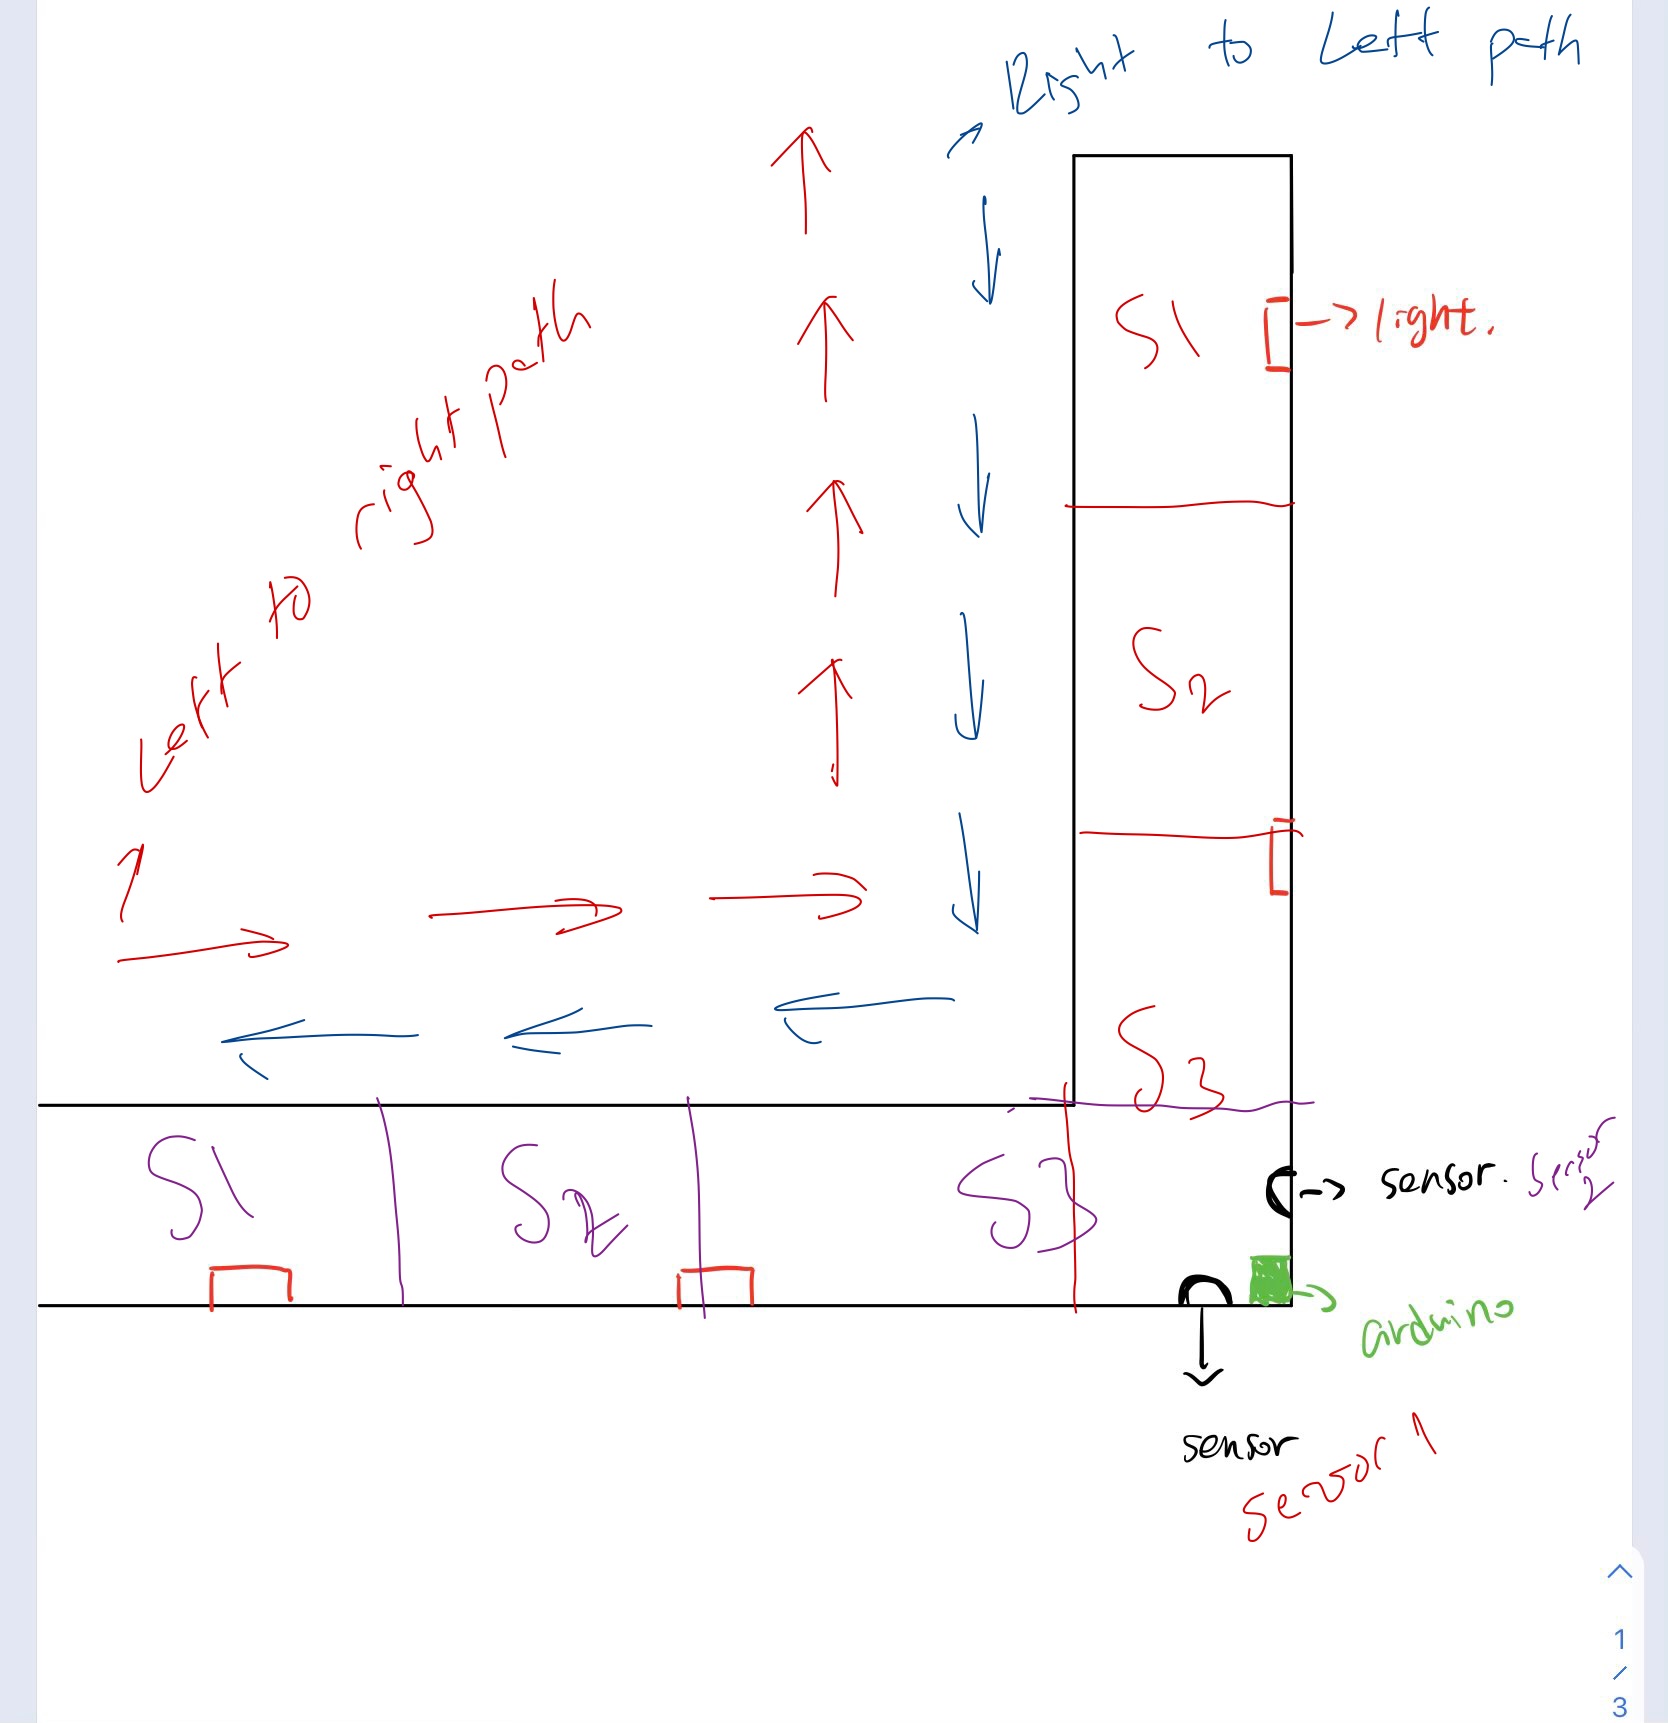 Right to Left path
Left to right path
S1
light.
S2
S3
S1
S2
S3
sensor.
sensor 2
arduino
sensor
sensor 1
1
/
3